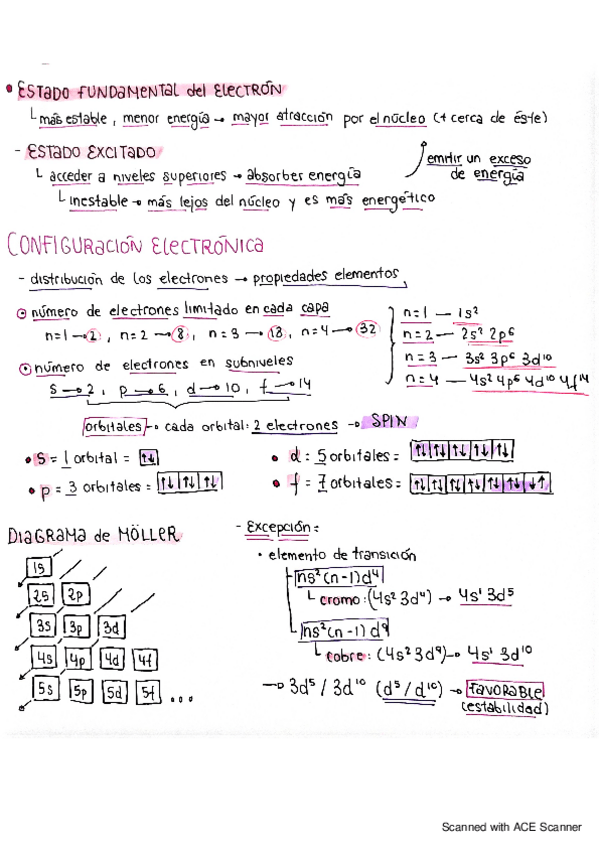 • ESTADO FUNDAMENTAL del ELECTRÓN
más estable, menor energía → mayor atracción por el núcleo (+ cerca de éste)
- ESTADO EXCITADO
acceder a niveles superiores → absorber energía
emitir un exceso de energía
inestable → más lejos del núcleo y es más energético
CONFIGURACIÓN ELECTRÓNICA
- distribución de los electrones → propiedades elementos
número de electrones limitado en cada capa
n=1 → 2, n=2 → 8, n=3 → 18, n=4 → 32
n=1 — 1s²
n=2 — 2s² 2p⁶
n=3 — 3s² 3p⁶ 3d¹⁰
n=4 — 4s² 4p⁶ 4d¹⁰ 4f¹⁴
número de electrones en subniveles
s → 2, p → 6, d → 10, f → 14
orbitales → cada orbital: 2 electrones → SPIN
• s = 1 orbital = ↑↓
• d = 5 orbitales = ↑↓ ↑↓ ↑↓ ↑↓ ↑↓
• p = 3 orbitales = ↑↓ ↑↓ ↑↓
• f = 7 orbitales = ↑↓ ↑↓ ↑↓ ↑↓ ↑↓ ↑↓ ↓↑
DIAGRAMA de MÖLLER
1s
2s 2p
3s 3p 3d
4s 4p 4d 4f
5s 5p 5d 5f ...
- Excepción:
• elemento de transición
ns² (n-1) d⁴
cromo: (4s² 3d⁴) → 4s¹ 3d⁵
ns² (n-1) d⁹
cobre: (4s² 3d⁹) → 4s¹ 3d¹⁰
→ 3d⁵ / 3d¹⁰ (d⁵ / d¹⁰) → FAVORABLE
(estabilidad)
Scanned with ACE Scanner